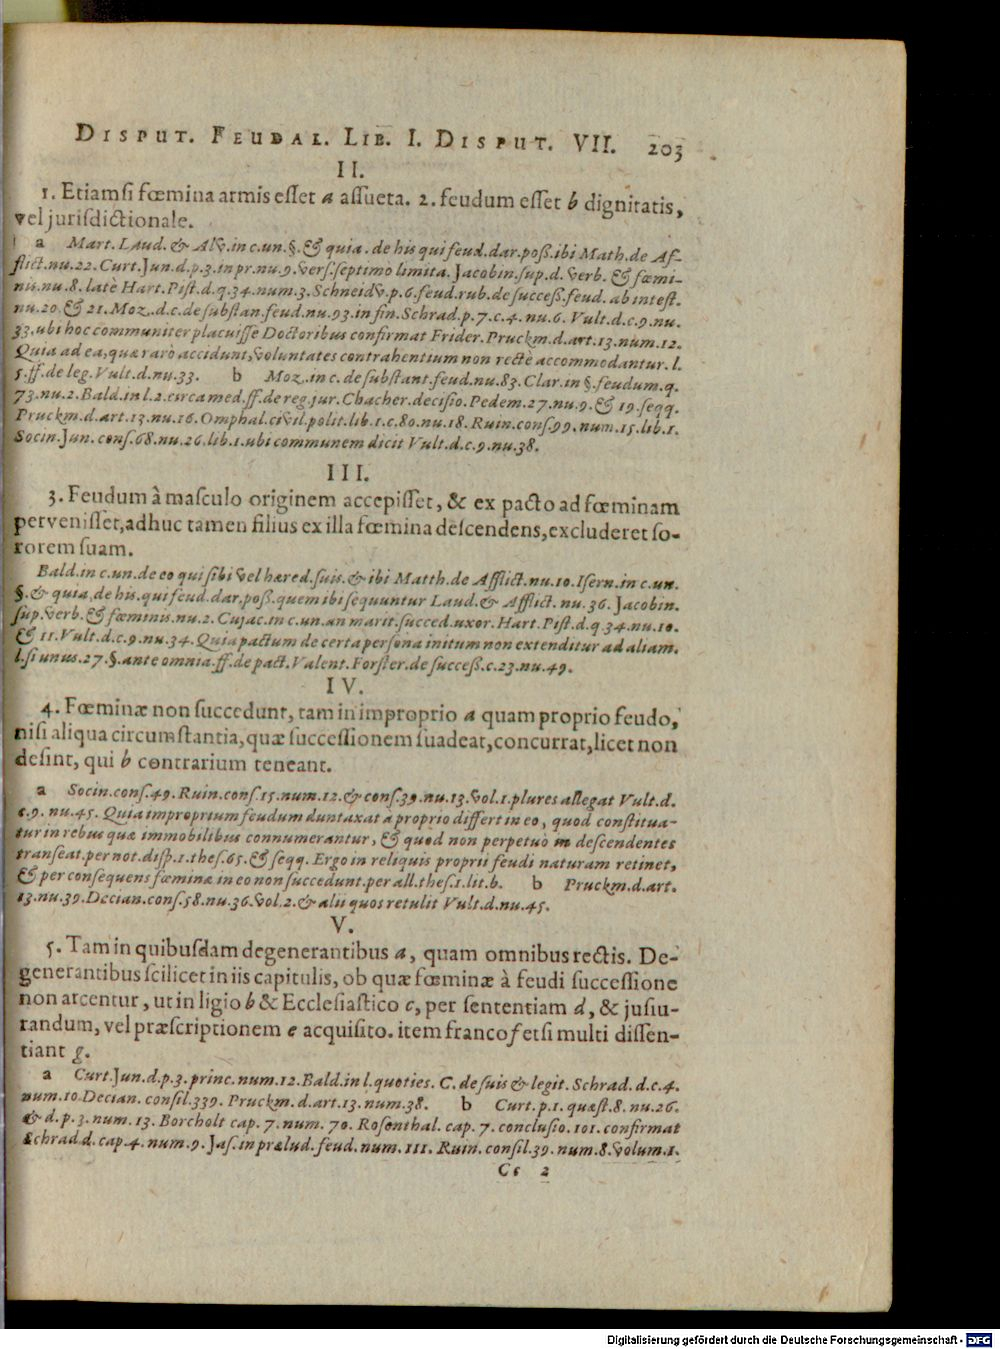 DISPUT. FEUDAL. LIB. I. DISPUT. VII. 203
II.
1. Etiamsi fœmina armis esset a assueta. 2. feudum esset b dignitatis,
vel jurisdictionale.
a Mart. Laud. & Alv. in c. un. §. & quia. de his qui feud. dar. poss. ibi Math. de Af-
flict. nu. 22. Curt. Jun. d. p. 3. in pr. nu. 9. vers. septimo limita. Jacobin. sup. d. verb. & fœmi-
nis. nu. 8. latè Hart. Pist. d. q. 34. num. 3. Schneidv. p. 6. feud. rub. de success. feud. ab intest.
nu. 20. & 21. Moz. d. c. de substan. feud. nu. 93. in fin. Schrad. p. 7. c. 4. nu. 6. Vult. d. c. 9. nu.
33. ubi hoc communiter placuisse Doctoribus confirmat Frider. Pruckm. d. art. 13. num. 12.
Quia ad ea, quæ raro accidunt, voluntates contrahentium non rectè accommodantur. l.
5. ff. de leg. Vult. d. nu. 33. b Moz. in c. de substant. feud. nu. 83. Clar. in §. feudum. q.
73. nu. 2. Bald. in l. 2. circa med. ff. de reg. jur. Cbacher. decisio. Pedem. 27. nu. 9. & 19. seqq.
Pruckm. d. art. 13. nu. 16. Omphal. civil. polit. lib. 1. c. 80. nu. 18. Ruin. cons. 99. num. 15. lib. 1.
Socin. Jun. cons. 68. nu. 26. lib. 1. ubi communem dicit Vult. d. c. 9. nu. 38.
III.
3. Feudum à masculo originem accepisset, & ex pacto ad fœminam
pervenisset, adhuc tamen filius ex illa fœmina descendens, excluderet so-
rorem suam.
Bald. in c. un. de eo qui sibi vel hæred. suis. & ibi Matth. de Afflict. nu. 10. Isern. in c. un.
§. & quia. de his. qui feud. dar. poss. quem ibi sequuntur Laud. & Afflict. nu. 36. Jacobin.
sup. verb. & fœminis. nu. 2. Cujac. in c. un. an marit. succed. uxor. Hart. Pist. d. q. 34. nu. 10.
& 11. Vult. d. c. 9. nu. 34. Quia pactum de certa persona initum non extenditur ad aliam.
l. si unus. 27. §. ante omnia. ff. de pact. Valent. Forster. de success. c. 23. nu. 49.
IV.
4. Fœminæ non succedunt, tam in improprio a quam proprio feudo,
nisi aliqua circumstantia, quæ successionem suadeat, concurrat, licet non
desint, qui b contrarium teneant.
a Socin. cons. 49. Ruin. cons. 15. num. 12. & cons. 39. nu. 13. vol. 1. plures allegat Vult. d.
c. 9. nu. 45. Quia improprium feudum duntaxat a proprio differt in eo, quod constitua-
tur in rebus quæ immobilibus connumerantur, & quod non perpetuò in descendentes
transeat. per not. disp. 1. thes. 65. & seqq. Ergo in reliquis proprii feudi naturam retinet,
& per consequens fœminæ in eo non succedunt. per all. thes. 1. lit. b. b Pruckm. d. art.
13. nu. 39. Decian. cons. 58. nu. 36. vol. 2. & alii quos retulit Vult. d. nu. 45.
V.
5. Tam in quibusdam degenerantibus a, quam omnibus rectis. De-
generantibus scilicet in iis capitulis, ob quæ fœminæ à feudi successione
non arcentur, ut in ligio b & Ecclesiastico c, per sententiam d, & jusju-
randum, vel præscriptionem e acquisito. item franco f etsi multi dissen-
tiant g.
a Curt. Jun. d. p. 3. princ. num. 12. Bald. in l. quoties. C. de suis & legit. Schrad. d. c. 4.
num. 10. Decian. consil. 339. Pruckm. d. art. 13. num. 38. b Curt. p. 1. quæst. 8. nu. 26.
& d. p. 3. num. 13. Borcholt cap. 7. num. 70. Rosenthal. cap. 7. conclusio. 101. confirmat
Schrad. d. cap. 4. num. 9. Jas. in prælud. feud. num. 111. Ruin. consil. 39. num. 8. volum. 1.
Cc 2
Digitalisierung gefördert durch die Deutsche Forschungsgemeinschaft - DFG